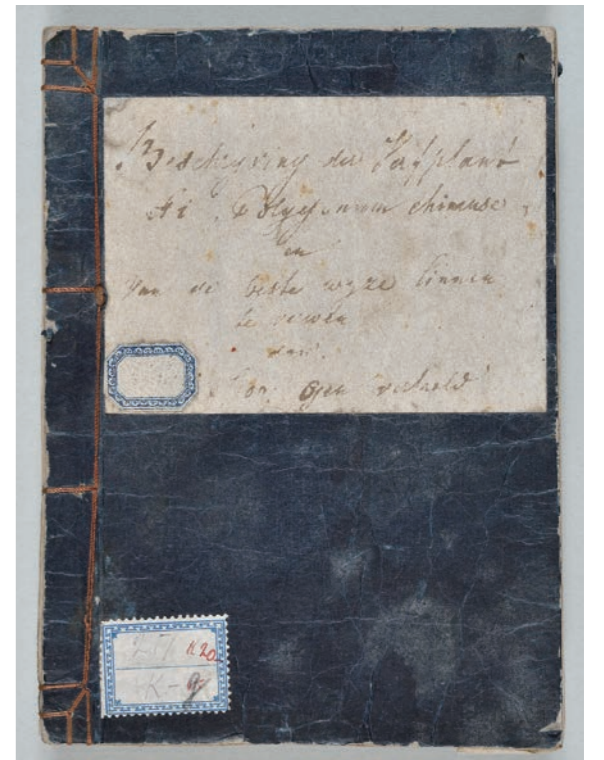 Beschryving der Verfplant
Ai, Polygonum chinense,
en
van de beste wyze linnen
te verwen
door
Gen
K